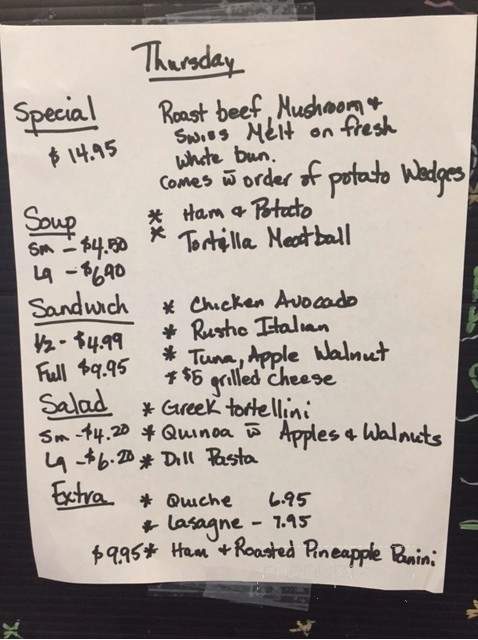 Thursday
Special Roast beef, Mushroom &
$14.95 Swiss Melt on fresh
White bun.
Comes w̄ order of potato Wedges
Soup * Ham & Potato
Sm - $4.50 * Tortilla Meatball
Lg - $6.90
Sandwich * Chicken Avocado
1/2 - $4.99 * Rustic Italian
Full $9.95 * Tuna, Apple Walnut
* $5 grilled cheese
Salad * Greek tortellini
Sm - $4.20 * Quinoa w̄ Apples & Walnuts
Lg - $6.20 * Dill Pasta
Extra * Quiche 6.95
* Lasagne - 7.95
$9.95 * Ham & Roasted Pineapple Panini